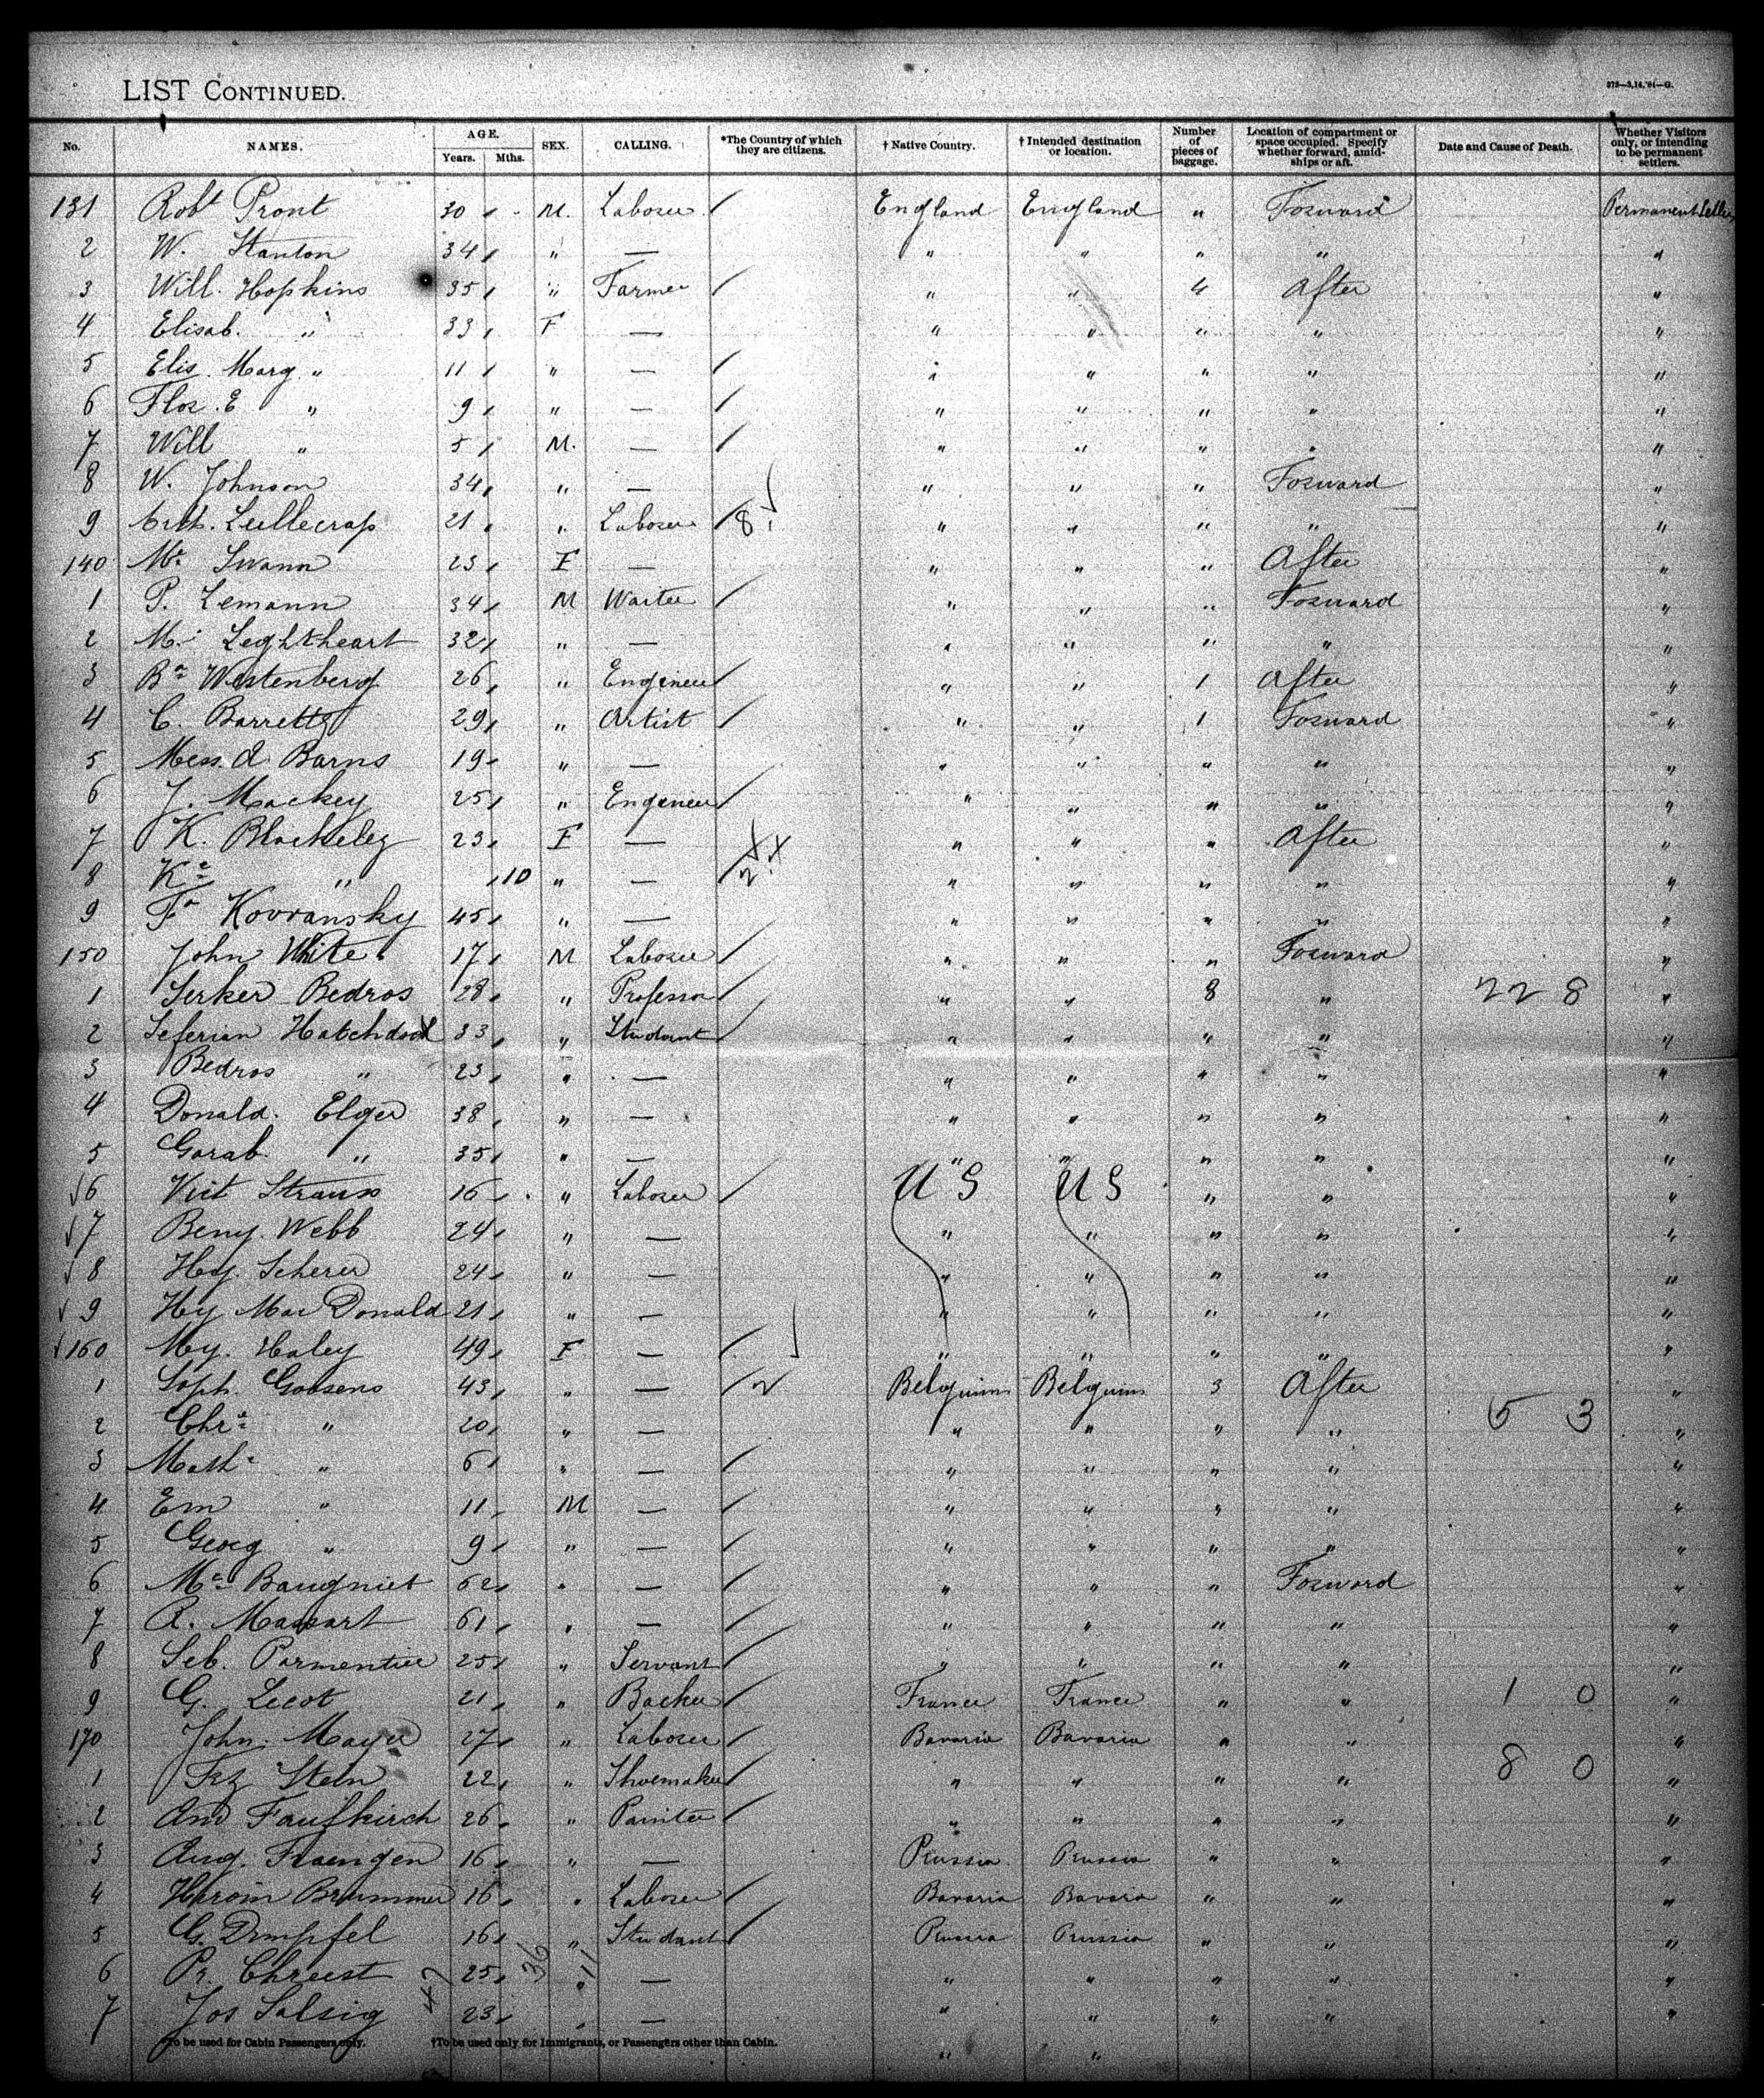 LIST CONTINUED.
373—3,14,'84—G.
No. NAMES. AGE. Years. Mths. SEX. CALLING. *The Country of which they are citizens. † Native Country. † Intended destination or location. Number of pieces of baggage. Location of compartment or space occupied. Specify whether forward, amidships or aft. Date and Cause of Death. Whether Visitors only, or intending to be permanent settlers.
131 Robt Pront 30 M. Laborer England England " Forward Permanent Settler
2 W. Stanton 34 " — " " " " "
3 Will. Hopkins 35 " Farmer " " 4 After "
4 Elisab. " 33 F — " " " " "
5 Elis. Marg. " 11 " — " " " " "
6 Flor. E " 9 " — " " " " "
7 Will " 5 M. — " " " " "
8 W. Johnson 34 " — " " " Forward "
9 Arth. Lullecrap 21 " Laborer 8 " " " " "
140 Mr Swann 23 F — " " " After "
1 P. Lemann 34 M Waiter " " " Forward "
2 M. Leghtheart 32 " — " " " " "
3 Ba Westenberg 26 " Engineer " " 1 After "
4 C. Barretts 29 " Artist " " 1 Forward "
5 Mess. d. Barns 19 " — " " " " "
6 J. Mackey 25 " Engineer " " " " "
7 K. Blackeley 23 F — " " " After "
8 Ke " 10 " — 2 " " " " "
9 Fr Kovransky 45 " — " " " " "
150 John White 17 M Laborer " " " Forward "
1 Serker Bedros 28 " Professor " " 8 " 22 8 "
2 Seferian Hatchdock 33 " Studant " " " " "
3 Bedros " 23 " — " " " " "
4 Donald. Elger 38 " — " " " " "
5 Garab. " 35 " — " " " " "
6 Vict Strauss 16 " Laborer U S U S " " "
7 Beny. Webb 24 " — " " " " "
8 Hy. Scherer 24 " — " " " " "
9 Hy Mac Donald 21 " — " " " " "
160 My. Haley 49 F — " " " " "
1 Soph. Goosens 43 " — 2 Belguim Belguim 3 After "
2 Chre " 20 " — " " " " 5 3 "
3 Math. " 6 " — " " " " "
4 Em " 11 M — " " " " "
5 Georg " 9 " — " " " " "
6 Mc Baugniet 62 " — " " " Forward "
7 A. Massart 61 " — " " " " "
8 Seb. Parmentier 25 " Servant " " " " "
9 G. Lecot 21 " Backer France France " " 1 0 "
170 John Mayer 27 " Laborer Bavaria Bavaria " " "
1 Frz Stein 22 " Shoemaker " " " " 8 0 "
2 And Faufkirch 26 " Painter " " " " "
3 Aug. Fraengen 16 " — Prussia Prussia " " "
4 Hiroin Brummer 16 " Laborer Bavaria Bavaria " " "
5 G. Dimpfel 16 " Studant Prussia Prussia " " "
6 Pr. Chreest 25 " — " " " " "
7 Jos Salsig 23 " — " " " " "
47 36 11
*To be used for Cabin Passengers only. †To be used only for Immigrants, or Passengers other than Cabin.
" "